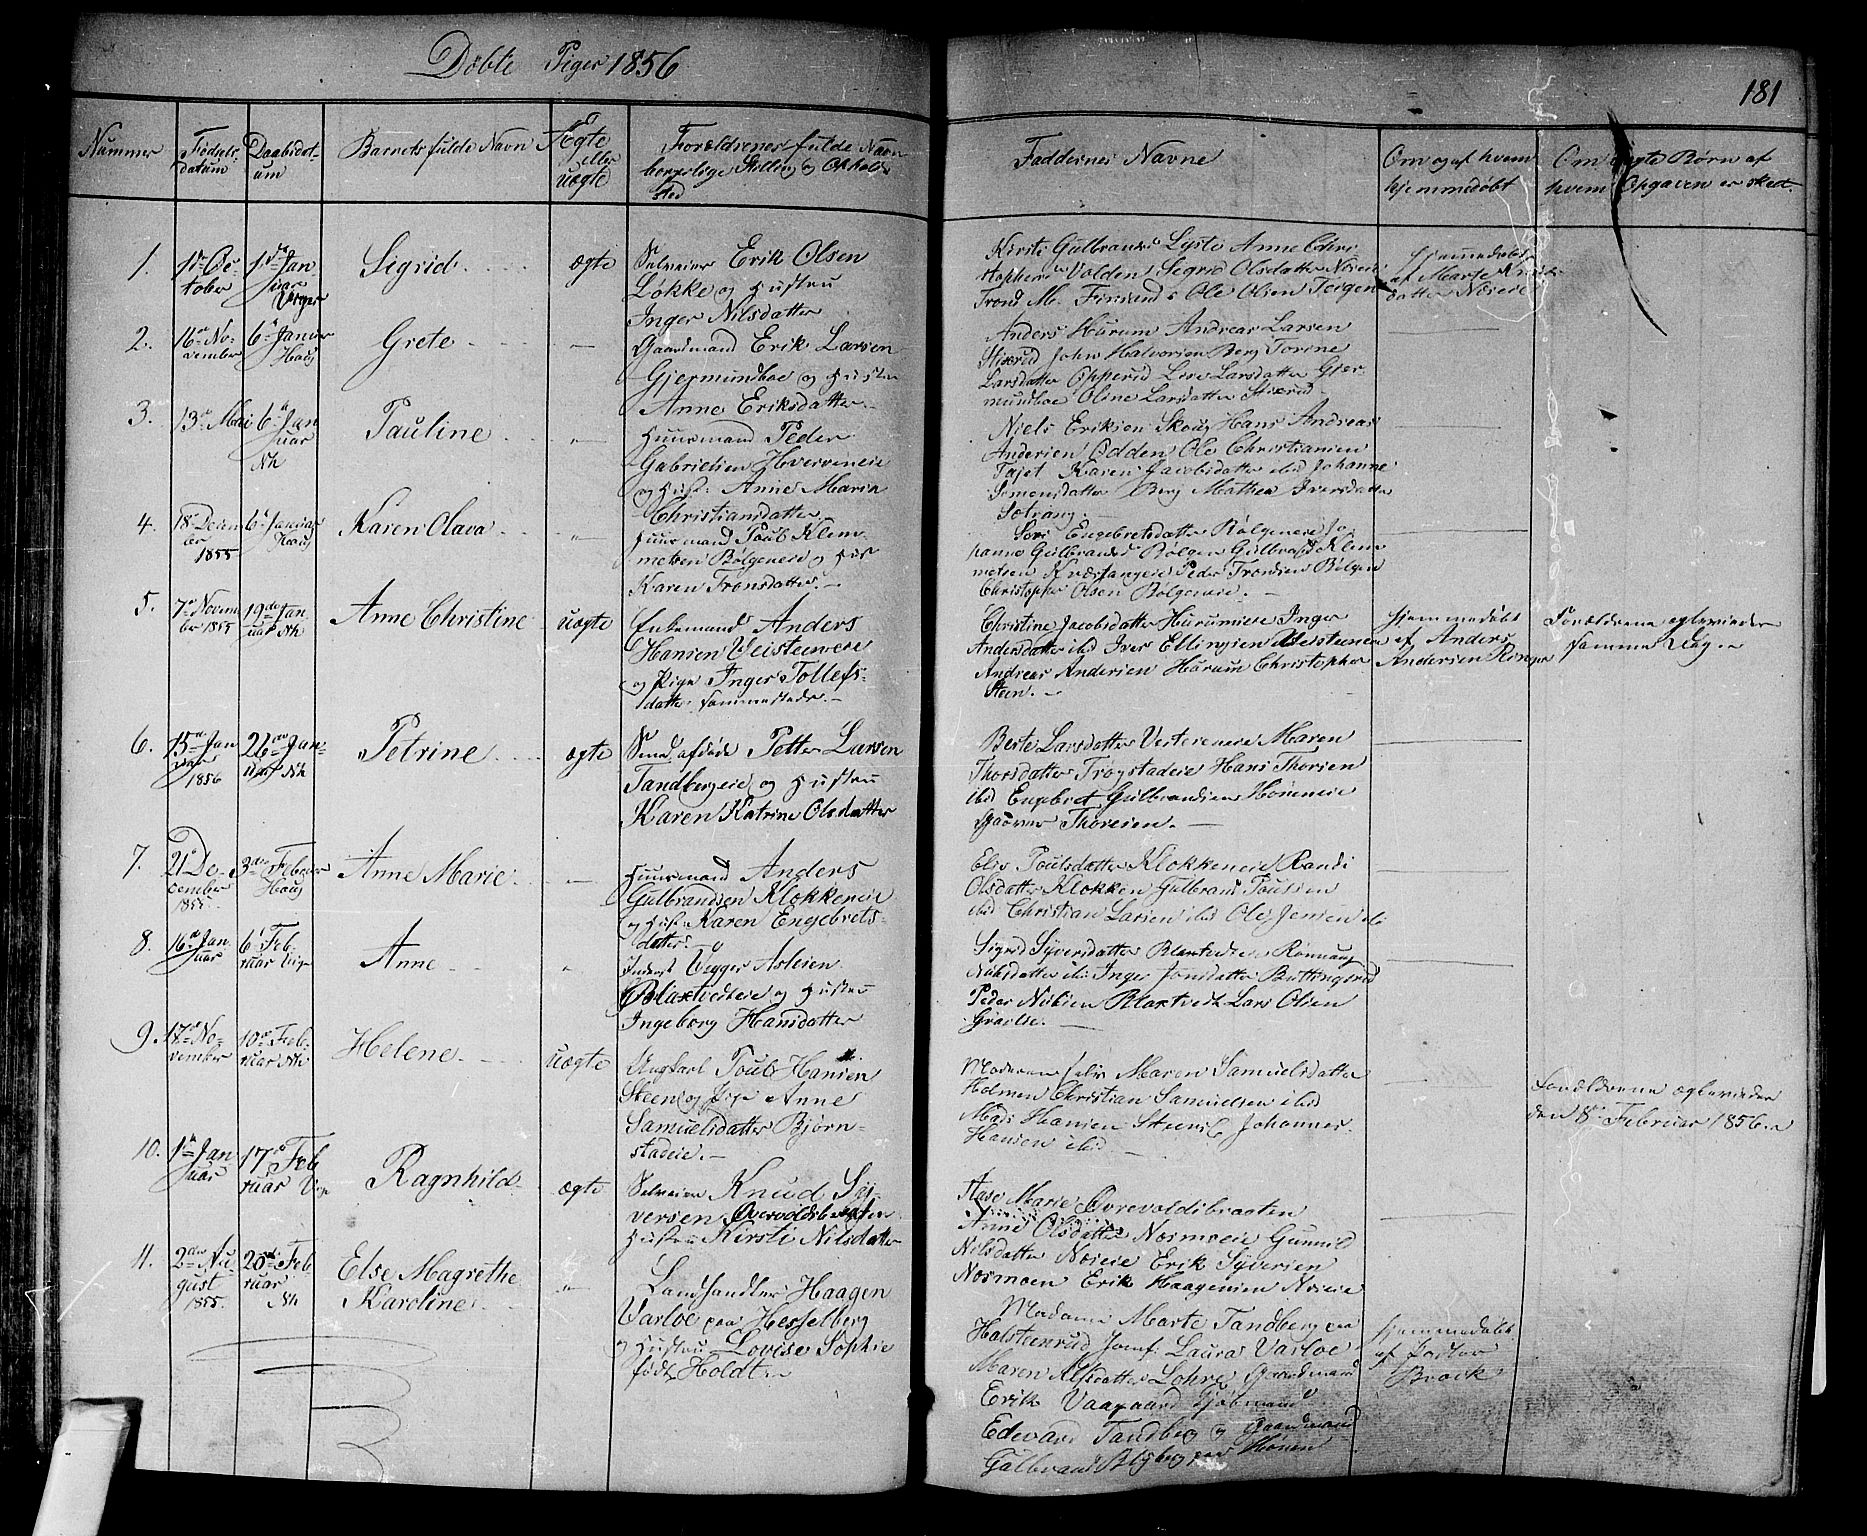 Døbte Piger 1856
181
Nummer
Fødsels-
datum
Daabsdat-
um
Barnets fulde Navn
Ægte
eller
uægte
Forældrenes fulde Navn
borgerlige Stilling og Opholds
sted
Faddernes Navne
Om og af hvem
hjemmedøbt
Om uægte Børn af
hvem Opgaven er skeet.
1.
1ste Oc-
tober
1ste Jan
uar
Viger
Sigrid
ægte
Selveier Erik Olsen
Løkke og Hustru
Inger Nilsdatter
Kirsti Gulbrandsd Lysto Anne Chri
stophersd Volden, Sigrid Olsdatter Næseie
Trond M. Ole Olsen
Hjemmedøbt
af Marte
datter Næseie
2.
16de No-
vember
6te Januar
Haug
Grete
Gaardmand Erik Larsen
Gjermundboe og Hustru
Anne Eriksdatter
Anders Hurum Andreas Larsen
Stixrud John Halvorsen Berg Torine
Larsdatter Opperud Live Larsdatter Gjer-
mundboe Oline Larsdatter Stixrud
3.
13de Mai
6te Jan
uar
Nh
Pauline
Huusmand Peder
Gabrielsen Hverveneie
og Hust: Anne Maria
Christiansdatter
Niels Eriksen Skoug Hans Andreas
Andersen Odden Ole Christiansen
Tajet Karen Jacobsdatter ibid Johanne
Simensdatter Berg Mathea Iversdatter
Sætrang.
4.
18de Decem
ber
1855
6te Januar
Haug
Karen Olava
Huusmand Poul Klem
metsen Bølgeneie og Hust
Karen Tronsdatter.
Siri Engebretsdatter Bølgeneie Jo
hanne Gulbrandsd Bølgen Gulbrand Klem
metsen Kværhangeie Peder Trondsen Bølgen
Christopher Olsen Bølgeneie.
5.
7de Novem
ber 1855
19de Jan
uar Nh
Anne Christine
uægte
Enkemand Anders
Hansen Veisteeneie
og Pige Inger Tollefs-
datter sammesteds.
Christine Jacobsdatter Hurumeie Inger
Andersdatter ibid Iver Ellingsen Veisteeneie
Andreas Andersen Hurum Christopher
Steen.
Hjemmedøbt
af Anders
Andersen Ringer
Forældrene egtevieder
samme Dag.
6.
15de Jan
uar
1856
26de Jan-
uar Nh
Petrine
ægte
Petter Larsen
Tandbergeie og Hustru
Karen Katrine Olsdatter
Berte Larsdatter Vestereneie Maren
Thorsdatter Trøgstadeie Hans Thorsen
ibid Engebret Gulbrandsen Høneneie
Thoresen.
7.
21de De-
cember
1855.
3die Februar
Haug
Anne Marie
Huusmand Anders
Gulbrandsen Klokkeneie
og Hust: Karen Engebrets-
datter.
Elis Poulsdatter Klokkeneie Randi
Olsdatter Klokken Gulbrand Poulsen
ibid Christian Larsen ibid Ole Jensen ib
8.
16de Jan
uar
6te Feb-
ruar Vige
Anne
Inderst Vegger Aslesen
Blaxtvedteie og Hustru
Ingeborg Hansdatter
Sigrid Syversdatter Blaxtvedteie Rønnaug
Nubsdatter ibid Inger Jonsdatter Buttingsrud
Peder Nubsen Blaxtvedt Lars Olsen
9.
17de No-
vember
10de Feb-
ruar Nh
Helene
uægte
Ungkarl Poul Hansen
Steen og Pige Anne
Samuelsdatter Bjørn-
stadeie.
Moderen selv Maren Samuelsdatter
Holmen Christian Samuelsen ibid
Mads Hansen Steen Johannes
Hansen ibid
Forældrene egtevieder
den 8de Februar 1856
10.
1ste Jan
uar
17de Feb
ruar Vige
Ragnhild
ægte
Selveier Knud Sy-
versen Overvoldsbraaten
Hustru Kirsti Nilsdatter
Aase Marie Ovrevoldsbraaten
Anne Olsdatter Nosmoeie Gunnild
Nilsdatter Næseie Erik Syversen
Nosmoen Erik Haagensen Næseie
11.
2den Au
gust
1855.
20de Feb
ruar
Nh
Else Magrethe
Karoline
Landhandler Haagen
Varloe paa Hesselberg
og Hustru Lovise Sophie
født Holdt
Madame Marte Tandberg paa
Halsteenrud Jomf: Laura Varloe
Maren Alfsdatter Lohre Gaardmand
Erik Vaagaard Kjøbmand
Edevard Tandberg og Gaardmand
Gulbrand Blyberg paa Hønen
Hjemmedøbt
af Pastor
Brock